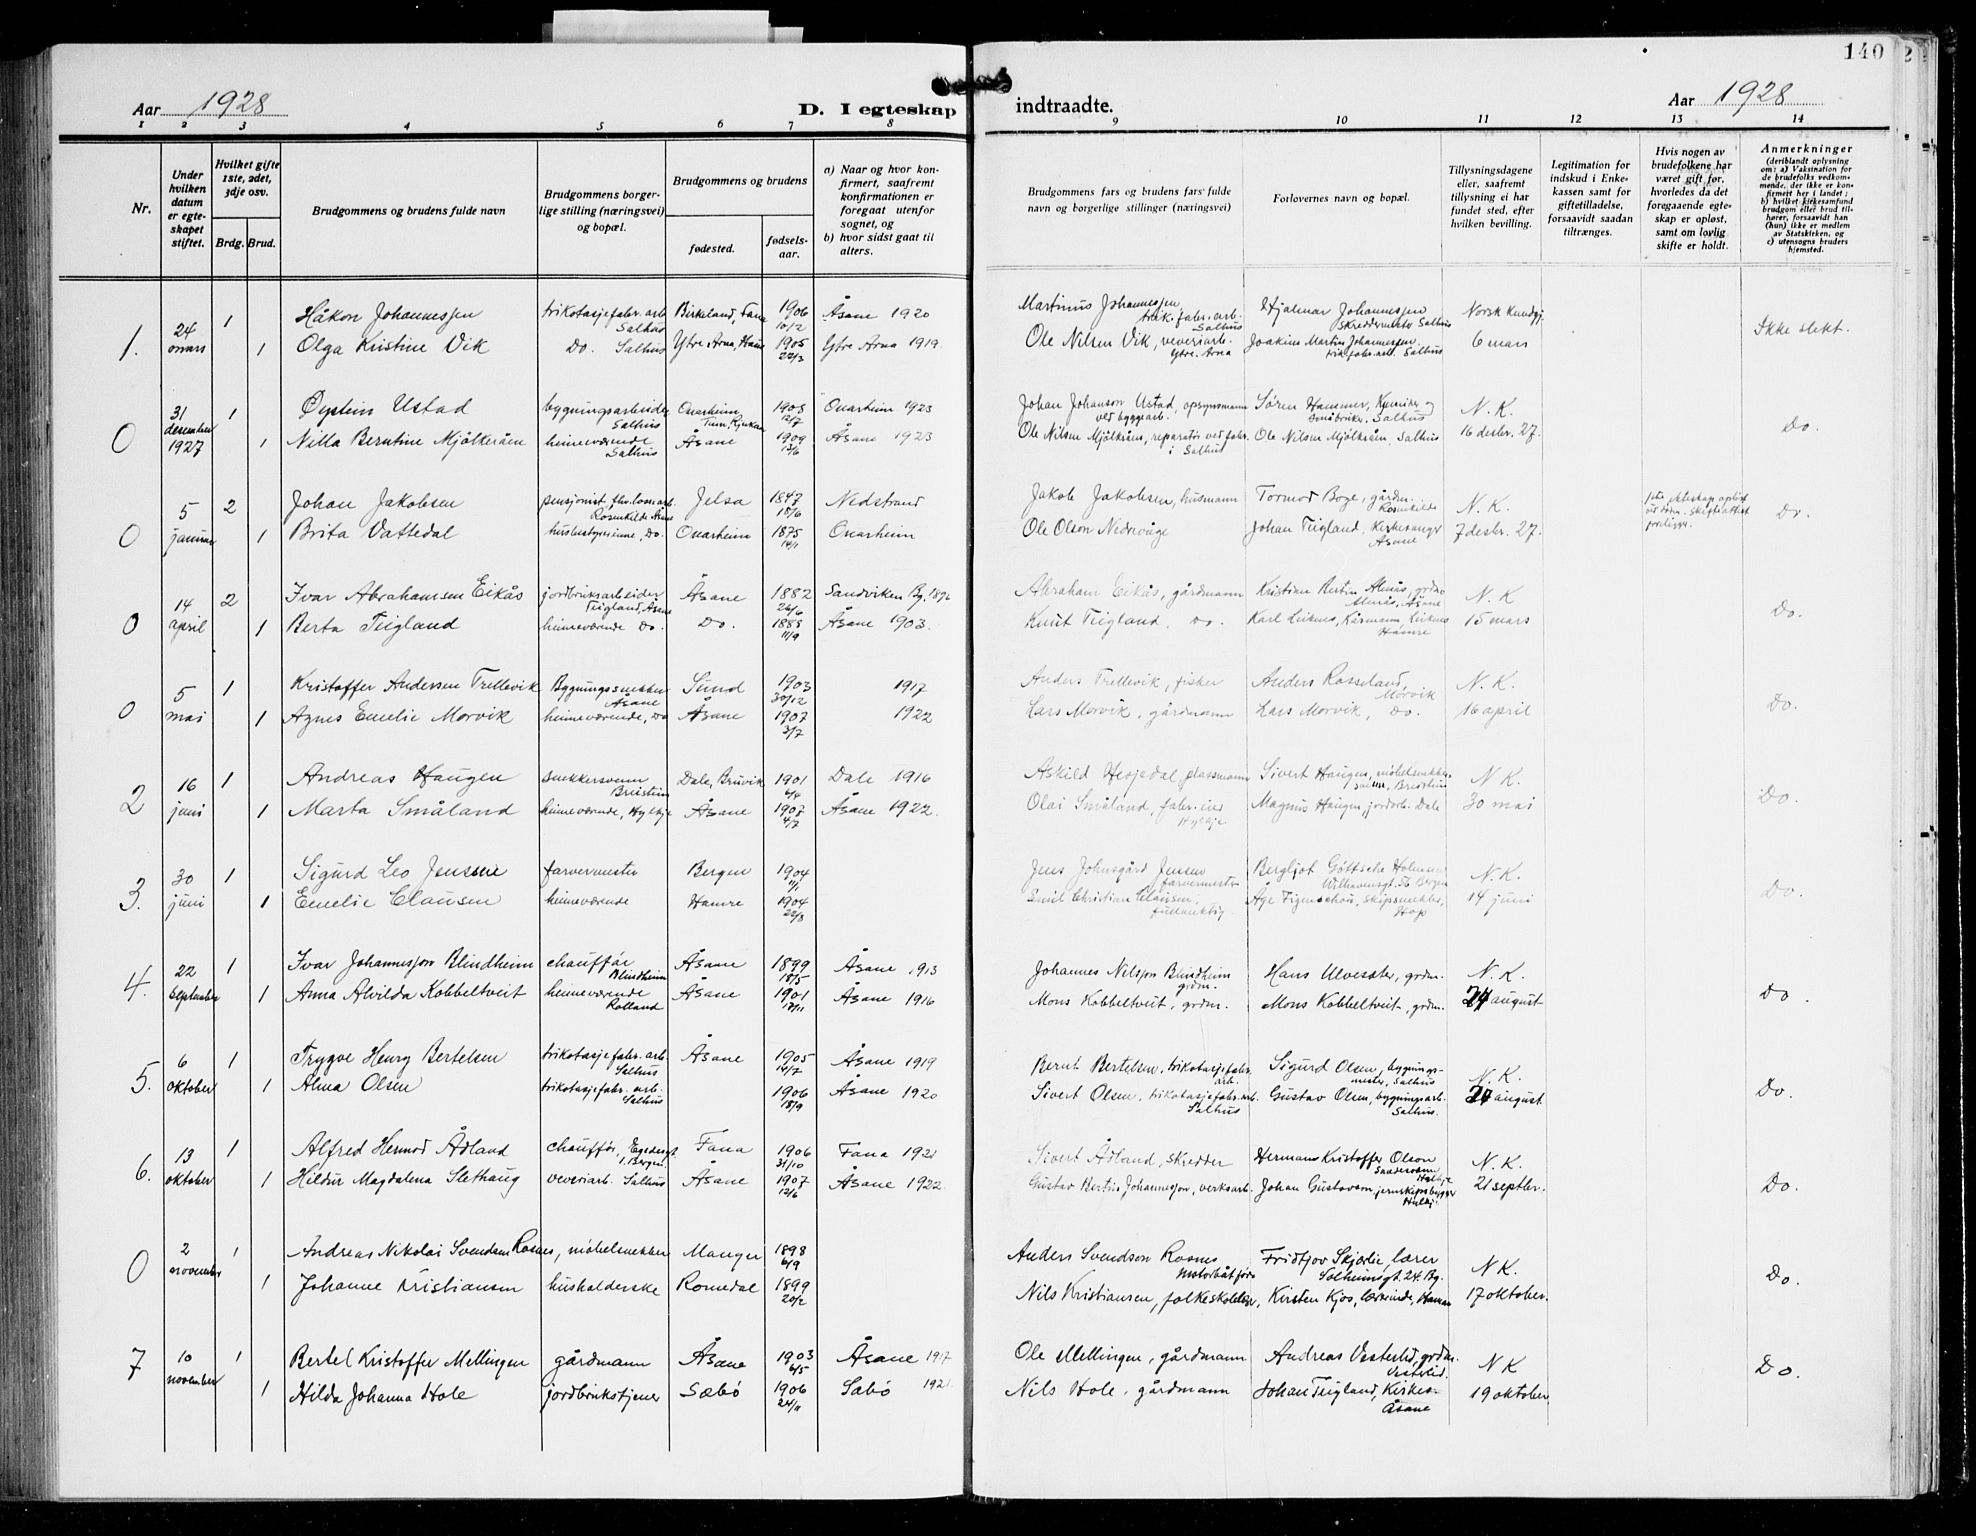 140
Aar 1928
D. I egteskap indtraadte.
Aar 1928
1 2 3 4 5 6 7 8 9 10 11 12 13 14
Nr.
Under hvilken datum er egteskapet stiftet.
Hvilket gifte 1ste, 2det, 3dje osv.
Brdg. Brud.
Brudgommens og brudens fulde navn
Brudgommens borgerlige stilling (næringsvei) og bopæl.
Brudgommens og brudens
fødested. fødselsaar.
a) Naar og hvor konfirmert, saafremt konfirmationen er foregaat utenfor sognet, og
b) hvor sidst gaat til alters.
Brudgommens fars og brudens fars fulde navn og borgerlige stillinger (næringsvei)
Forlovernes navn og bopæl.
Tillysningsdagene eller, saafremt tillysning ei har fundet sted, efter hvilken bevilling.
Legitimation for indskud i Enkekassen samt for giftetilladelse, forsaavidt saadan tiltrænges.
Hvis nogen av brudefolkene har været gift før, hvorledes da det foregaaende egteskap er opløst, samt om lovlig skifte er holdt.
Anmerkninger
(deriblandt oplysning om: a) Vaksination for de brudefolks vedkommende, der ikke er konfirmert her i landet; b) hvilket kirkesamfund brudgom eller brud tilhører, forsaavidt han (hun) ikke er medlem av Statskirken, og c) utensogns bruders hjemsted.
1. 24 mars 1 Håkon Johannessen trikotasjefabr. arb. Salhus Birkeland, Fana 1906 10/2 Åsane 1920 Martinus Johannessen trik. fabr. arb. Salhus Hjalmar Johannessen skreddermester Salhus Norsk Kundgj. Ikke slekt.
1 Olga Kristine Vik Do. Salhus Ytre Arna, Haus 1905 22/3 Ytre Arna 1919. Ole Nilsen Vik, veveriarb. Ytre Arna Joakim Martin Johannessen trik. fabr. arb. Salhus 6 mars
0 31 desember 1927 1 Øystein Ustad bygningsarbeider Salhus Onarheim 1903 12/7 Onarheim 1923 Johan Johanson Ustad, opsynsmann ved byggearb. Søren Hammer, Salhus N. K. Do.
1 Nilla Berntine Mjølkeråen heimeværende Salhus Åsane 1909 13/6 Åsane 1923 Ole Nilsen Mjølkråen, reparatør ved fabr. i Salhus Ole Nilsen Mjølkråen, Salhus 16 desbr. 27.
0 5 januar 2 Johan Jakobsen pensjonist, Rosenkilde Jelsa 1847 18/6 Nedstrand Jakob Jakobsen, husmann Tormod Boge, gårdm. Rosenkilde N. K. Do.
1 Brita Vattedal husbestyrerinne, Do. Onarheim 1875 14/1 Onarheim Ole Olson Nedrevåge Johan Teigland, Kirkesanger Åsane 7 desbr. 27.
0 14 april 2 Ivar Abrahamsen Eikås jordbruksarbeider Teigland, Åsane Åsane 1882 26/6 Sandviken Bg. 1896 Abraham Eikås, gårdmann Kristian Bertin Almås, grdm. Almås, Åsane N. K Do.
1 Berta Teigland heimeværende Do. Do. 1888 11/9 Åsane 1903. Knut Teigland, Do. Karl Leiknes, Leiknes Hamre 15 mars
0 5 mai 1 Kristoffer Andersen Trellevik Bygningssnekker Åsane Sund 1903 30/12 1917 Anders Trellevik, fisker Anders Rosseland, Morvik N. K. Do.
1 Agnes Emelie Morvik heimeværende, Do Åsane 1907 3/7 1922 Lars Morvik, gårdmann Lars Morvik, Do. 16 april
2 16 juni 1 Andreas Haugen snekkersvenn Breistein Dale, Bruvik 1901 6/4 Dale 1916 Askild Hesjedal, plassmann Sivert Haugen, møbelsnekker Breistein N K. Do.
1 Marta Småland heimeværende, Hylkje Åsane 1907 4/7 Åsane 1922. Olai Småland, fabr. eier Hylkje Magnus Haugen, jordarb. Dale 30 mai
3. 30 juni 1 Sigurd Leo Jenssen farvermester Bergen 1904 4/1 Jens Johnsgård Jensen farvermester Bergljot Göttsche Holmsen Bergen N. K. Do.
1 Emelie Clausen heimeværende Hamre 1904 22/8 Emil Christian Clausen, Åge Figenschou, skipsmekler, Hop 14 juni
4. 22 september 1 Ivar Johannesson Blindheim chauffør Blindheim Åsane 1899 18/5 Åsane 1913 Johannes Nilsson Blindheim grdm. Hans Ulvesæter, grdm. N. K. Do.
1 Anna Alvilda Kobbeltveit heimeværende Rolland Åsane 1901 17/11 Åsane 1916 Mons Kobbeltveit, grdm. Mons Kobbeltveit, grdm. august
5. 6 oktober 1 Trygve Henry Bertelsen trikotasjefabr. arb. Salhus Åsane 1905 16/7 Åsane 1919 Bernt Bertelsen, trikotasjefabr. arb. Sigurd Olsen, bygningsmester, Salhus N. K. Do.
1 Alma Olsen trikotasjefabr. arb. Salhus 1906 18/9 Åsane 1920 Sivert Olsen, trikotasjefabr. arb. Salhus Gustav Olsen, bygningsarb. Salhus. august
6. 13 oktober 1 Alfred Hermod Ådland chauffør, Bergen Fana 1906 31/10 Fana 1921 Sivert Ådland, skredder Herman Kristoffer Olson Hylkje N. K. Do.
1 Hildur Magdalena Slethaug veveriarb. Salhus Åsane 1907 12/6 Åsane 1922 Gustav Bertin Johannesson, verksarb. Johan Gustavson, jernskipsbygger Hylkje 21 septbr.
0 2 november 1 Andreas Nikolai Svendsen Rosnes, møbelsnekker Manger 1898 6/9 Anders Svendson Rosnes motorbåtfører Fridtjov Skjerlie, lærer Solheimsgt. 24. Bg. N K. Do.
1 Johanne Kristiansen husholderske Romedal 1899 20/2 Nils Kristiansen, folkeskolelær, Kirsten Kjos, lærerinde, Hamar 17 oktober.
7 10 november 1 Bertel Kristoffer Mellingen gårdmann Åsane 1903 6/5 Åsane 1917 Ole Mellingen, gårdmann Andreas Vestlid, grdm. Vestlid. N K Do.
1 Hilda Johanna Hole jordbrukstjener Sæbø 1906 24/11 Sæbø 1921. Nils Hole, gårdmann Johan Teigland, Kirkes. Åsane 19 oktober.